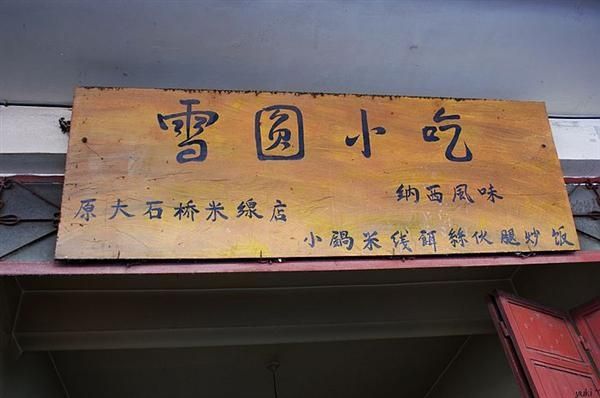 雪圆小吃
纳西風味
原大石桥米線店
小鍋米线餌絲伙腿炒饭
yuki